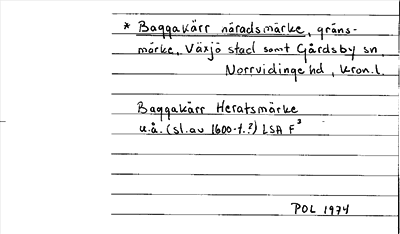 * Baggakärr häradsmärke, gräns-
märke, Växjö stad samt Gårdsby sn,
Norrvidinge hd, Kron.l.
Baggakärr Heratsmärke
u.å. (sl. av 1600-t.?) LSA F³
POL 1974